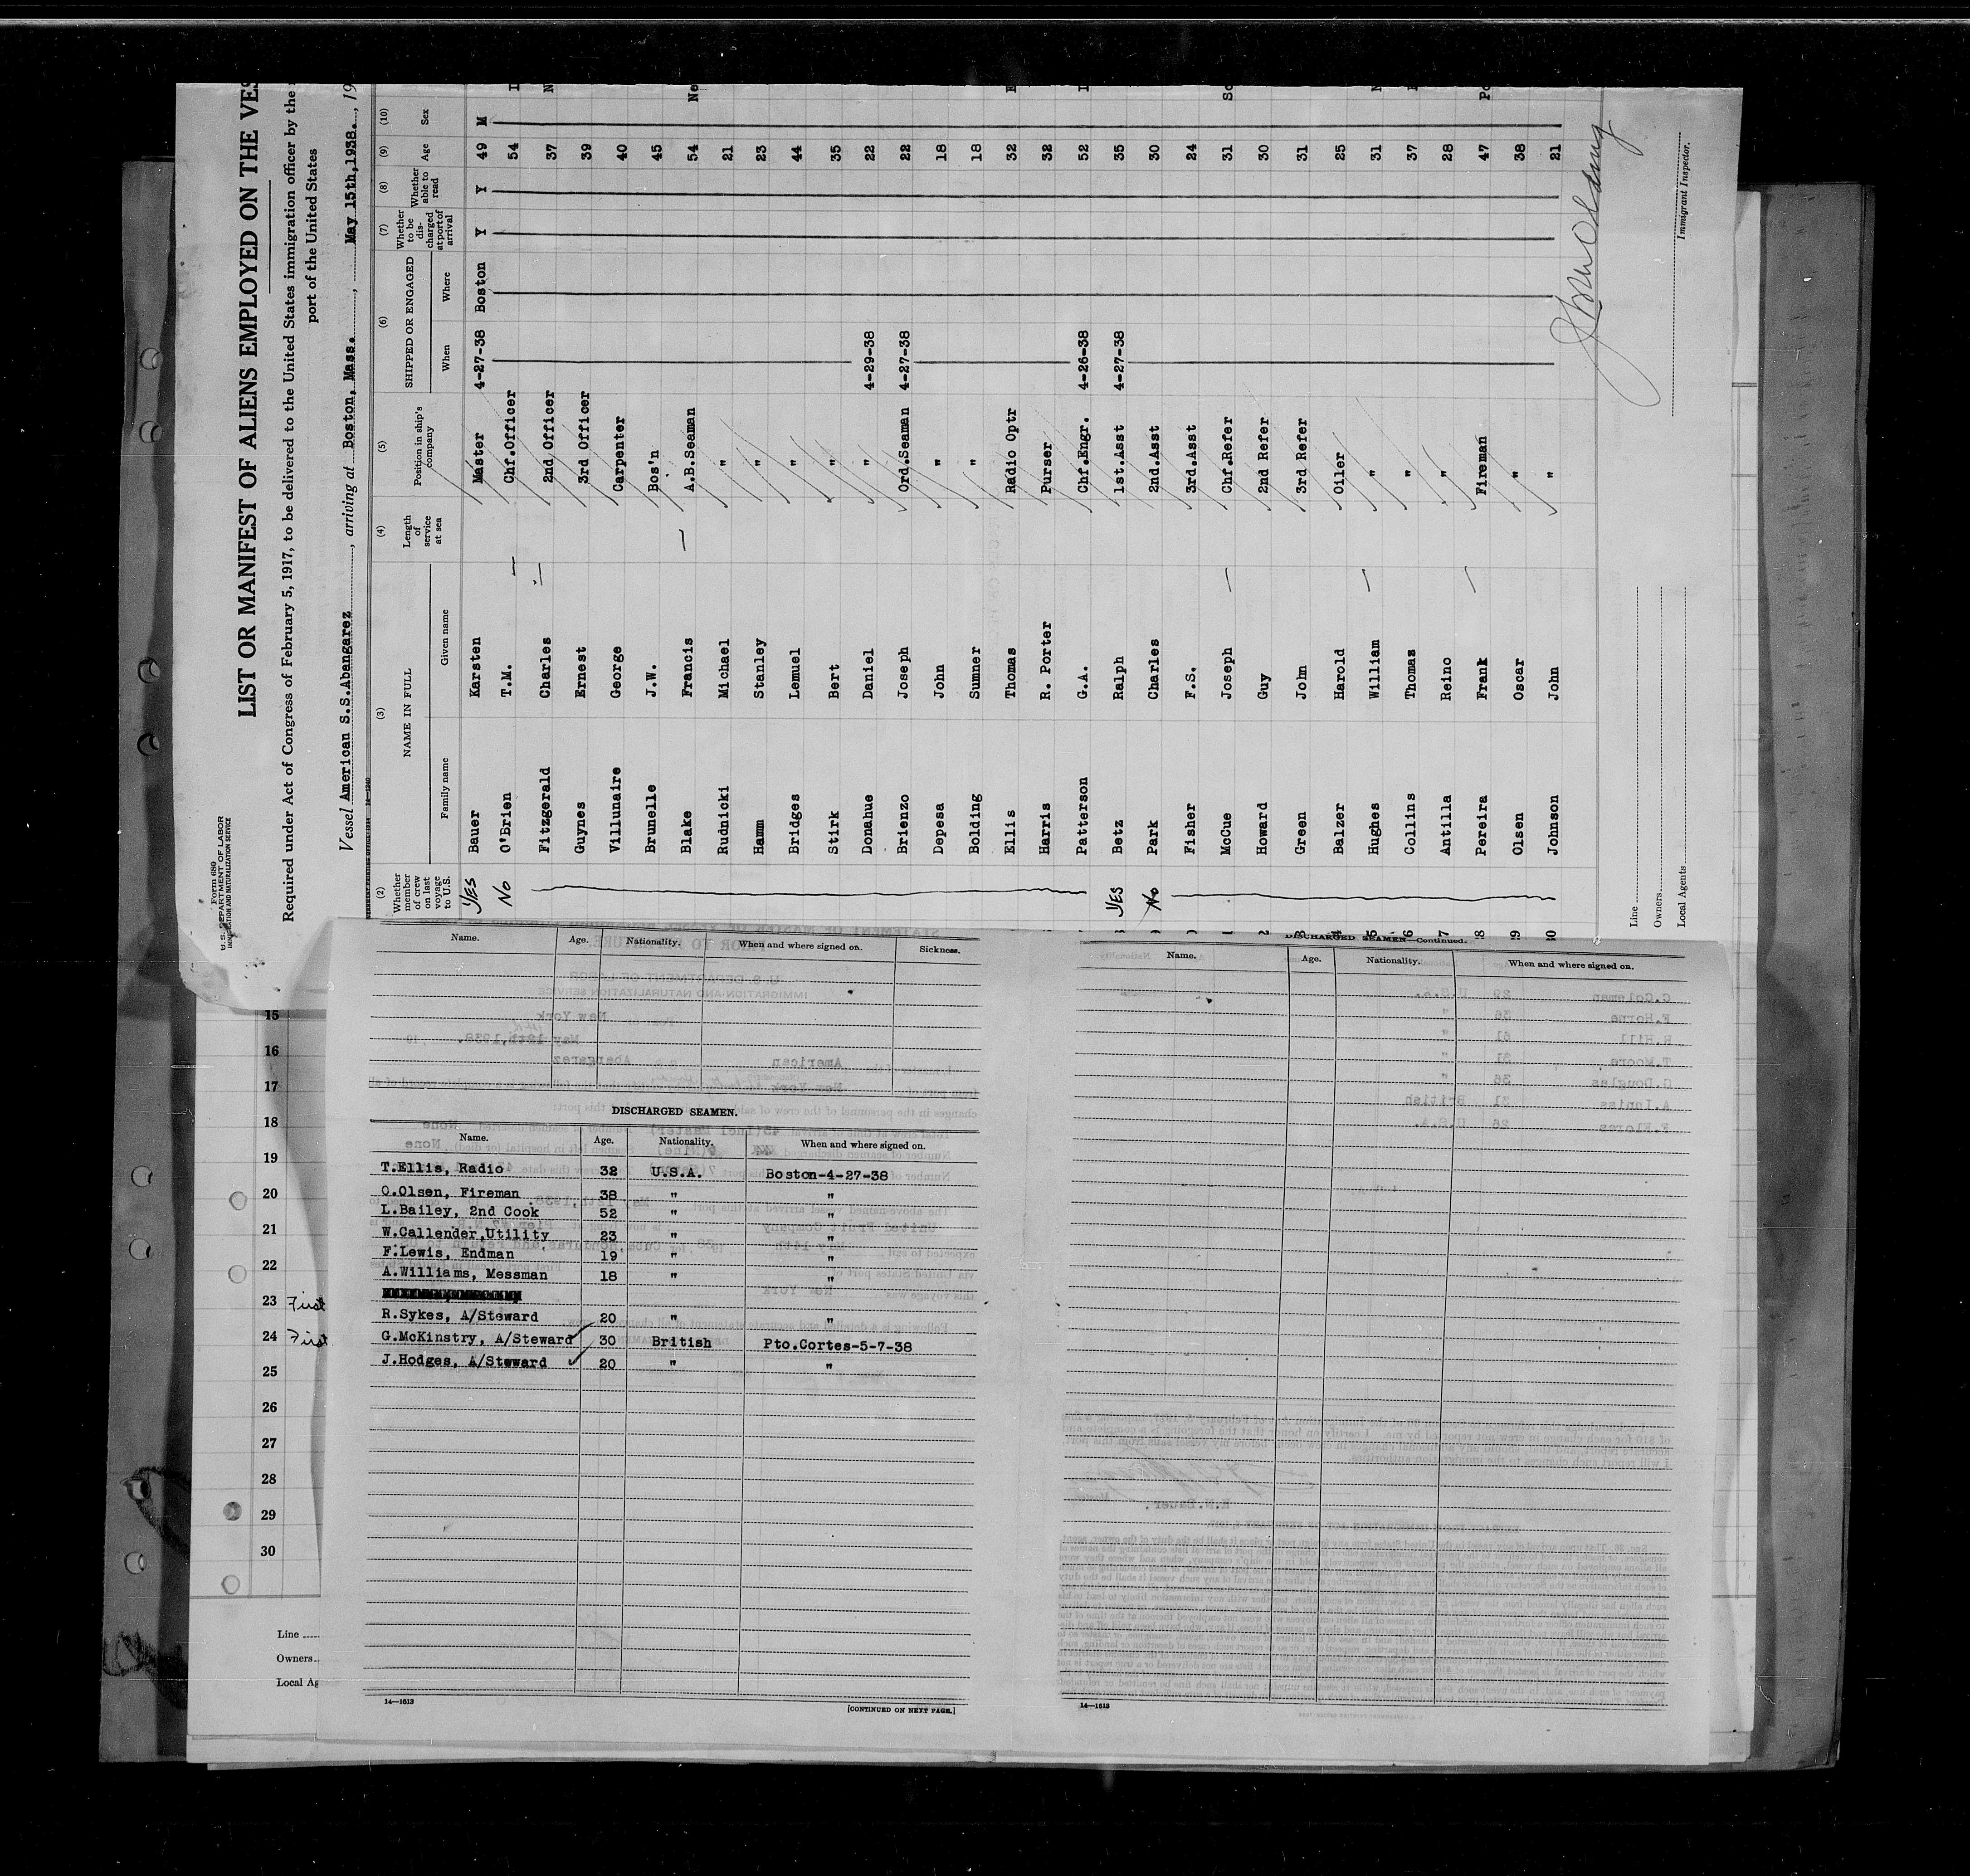 Form 689
U.S. DEPARTMENT OF LABOR
IMMIGRATION AND NATURALIZATION SERVICE
LIST OR MANIFEST OF ALIENS EMPLOYED ON THE VES
Required under Act of Congress of February 5, 1917, to be delivered to the United States immigration officer by the
port of the United States
Vessel American S.S.Abangarez, arriving at Boston, Mass., May 15th,1938., 19
(2) (3) (4) (5) (6) (7) (8) (9) (10)
Whether member of crew on last voyage to U.S. NAME IN FULL Family name Given name Length of service at sea Position in ship's company SHIPPED OR ENGAGED When Where Whether to be discharged at port of arrival Whether able to read Age Sex
YES Bauer Karsten Master 4-27-38 Boston Y Y 49 M
No O'Brien T.M. Chf.Officer 54
Fitzgerald Charles 2nd Officer 37
Guynes Ernest 3rd Officer 39
Villunaire George Carpenter 40
Brunelle J.W. Bos'n 45
Blake Francis A.B.Seaman 54 Ne
Rudnicki Michael " 21
Hamm Stanley " 23
Bridges Lemuel " 44
Stirk Bert " 35
Donahue Daniel " 4-29-38 22
Brienzo Joseph Ord.Seaman 4-27-38 22
Depesa John " 18
Bolding Sumner " 18
Ellis Thomas Radio Optr 32
Harris R. Porter Purser 32
Patterson G.A. Chf.Engr. 4-26-38 52
YES Betz Ralph 1st.Asst 4-27-38 35
No Park Charles 2nd.Asst 30
Fisher F.S. 3rd.Asst 24
McCue Joseph Chf.Refer 31 Sc
Howard Guy 2nd Refer 30
Green John 3rd Refer 31
Balzer Harold Oiler 25
Hughes William " 31
Collins Thomas " 37
Antilla Reino " 28
Pereira Frank Fireman 47 Po
Olsen Oscar " 38
Johnson John " 21
Line
Owners
Local Agents
Immigrant Inspector.
Name. Age. Nationality. When and where signed on. Sickness.
DISCHARGED SEAMEN.
Name. Age. Nationality. When and where signed on.
T.Ellis, Radio 32 U.S.A. Boston-4-27-38
O.Olsen, Fireman 38 " "
L.Bailey, 2nd Cook 52 " "
W.Callender,Utility 23 " "
F.Lewis, Endman 19 " "
A.Williams, Messman 18 " "
R.Sykes, A/Steward 20 " "
G.McKinstry, A/Steward 30 British Pto.Cortes-5-7-38
J.Hodges, A/Steward 20 " "
14—1613
[CONTINUED ON NEXT PAGE.]
DISCHARGED SEAMEN—Continued.
Name. Age. Nationality. When and where signed on.
14—1613
15
16
17
18
19
20
21
22
23 First
24 First
25
26
27
28
29
30
Line
Owners
Local Ag